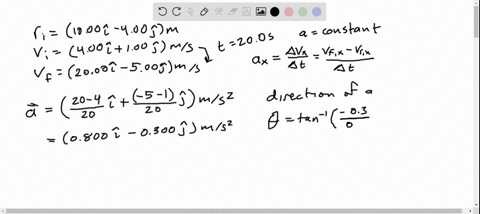 r_i = (10.00î - 4.00ĵ) m
v_i = (4.00î + 1.00ĵ) m/s
v_f = (20.00î - 5.00ĵ) m/s
t = 20.0s
a = constant
a_x = Δv_x/Δt = (v_f,x - v_i,x)/Δt
a⃗ = (20-4/20 î + (-5-1)/20 ĵ) m/s²
= (0.800î - 0.300ĵ) m/s²
direction of a
θ = tan⁻¹(-0.3/0